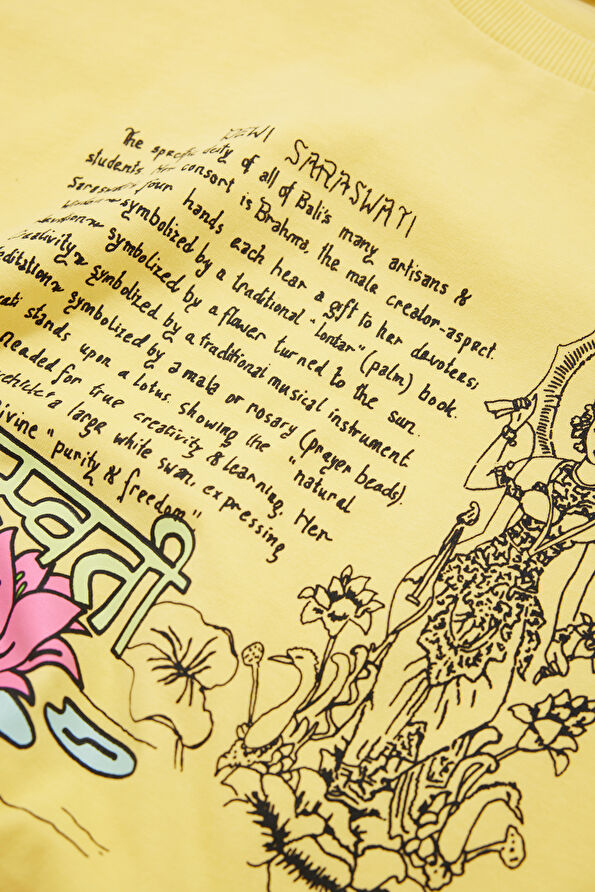 DEWI
SARASWATI
The specific deity of all of Bali's many artisans &
students Her consort is Brahma, the male creator-aspect.
Saraswati's four hands each hear a gift to her devotees;
symbolized by a traditional "lontar" (palm) book.
symbolized by a flower turned to the sun.
Creativity symbolized by a traditional musical instrument
meditation symbolized by a mala or rosary (prayer beads).
stands upon a lotus. showing the "natural
needed for true creativity & learning. Her
vehicle's a large white swan, expressing
divine "purity & freedom"
स्वती